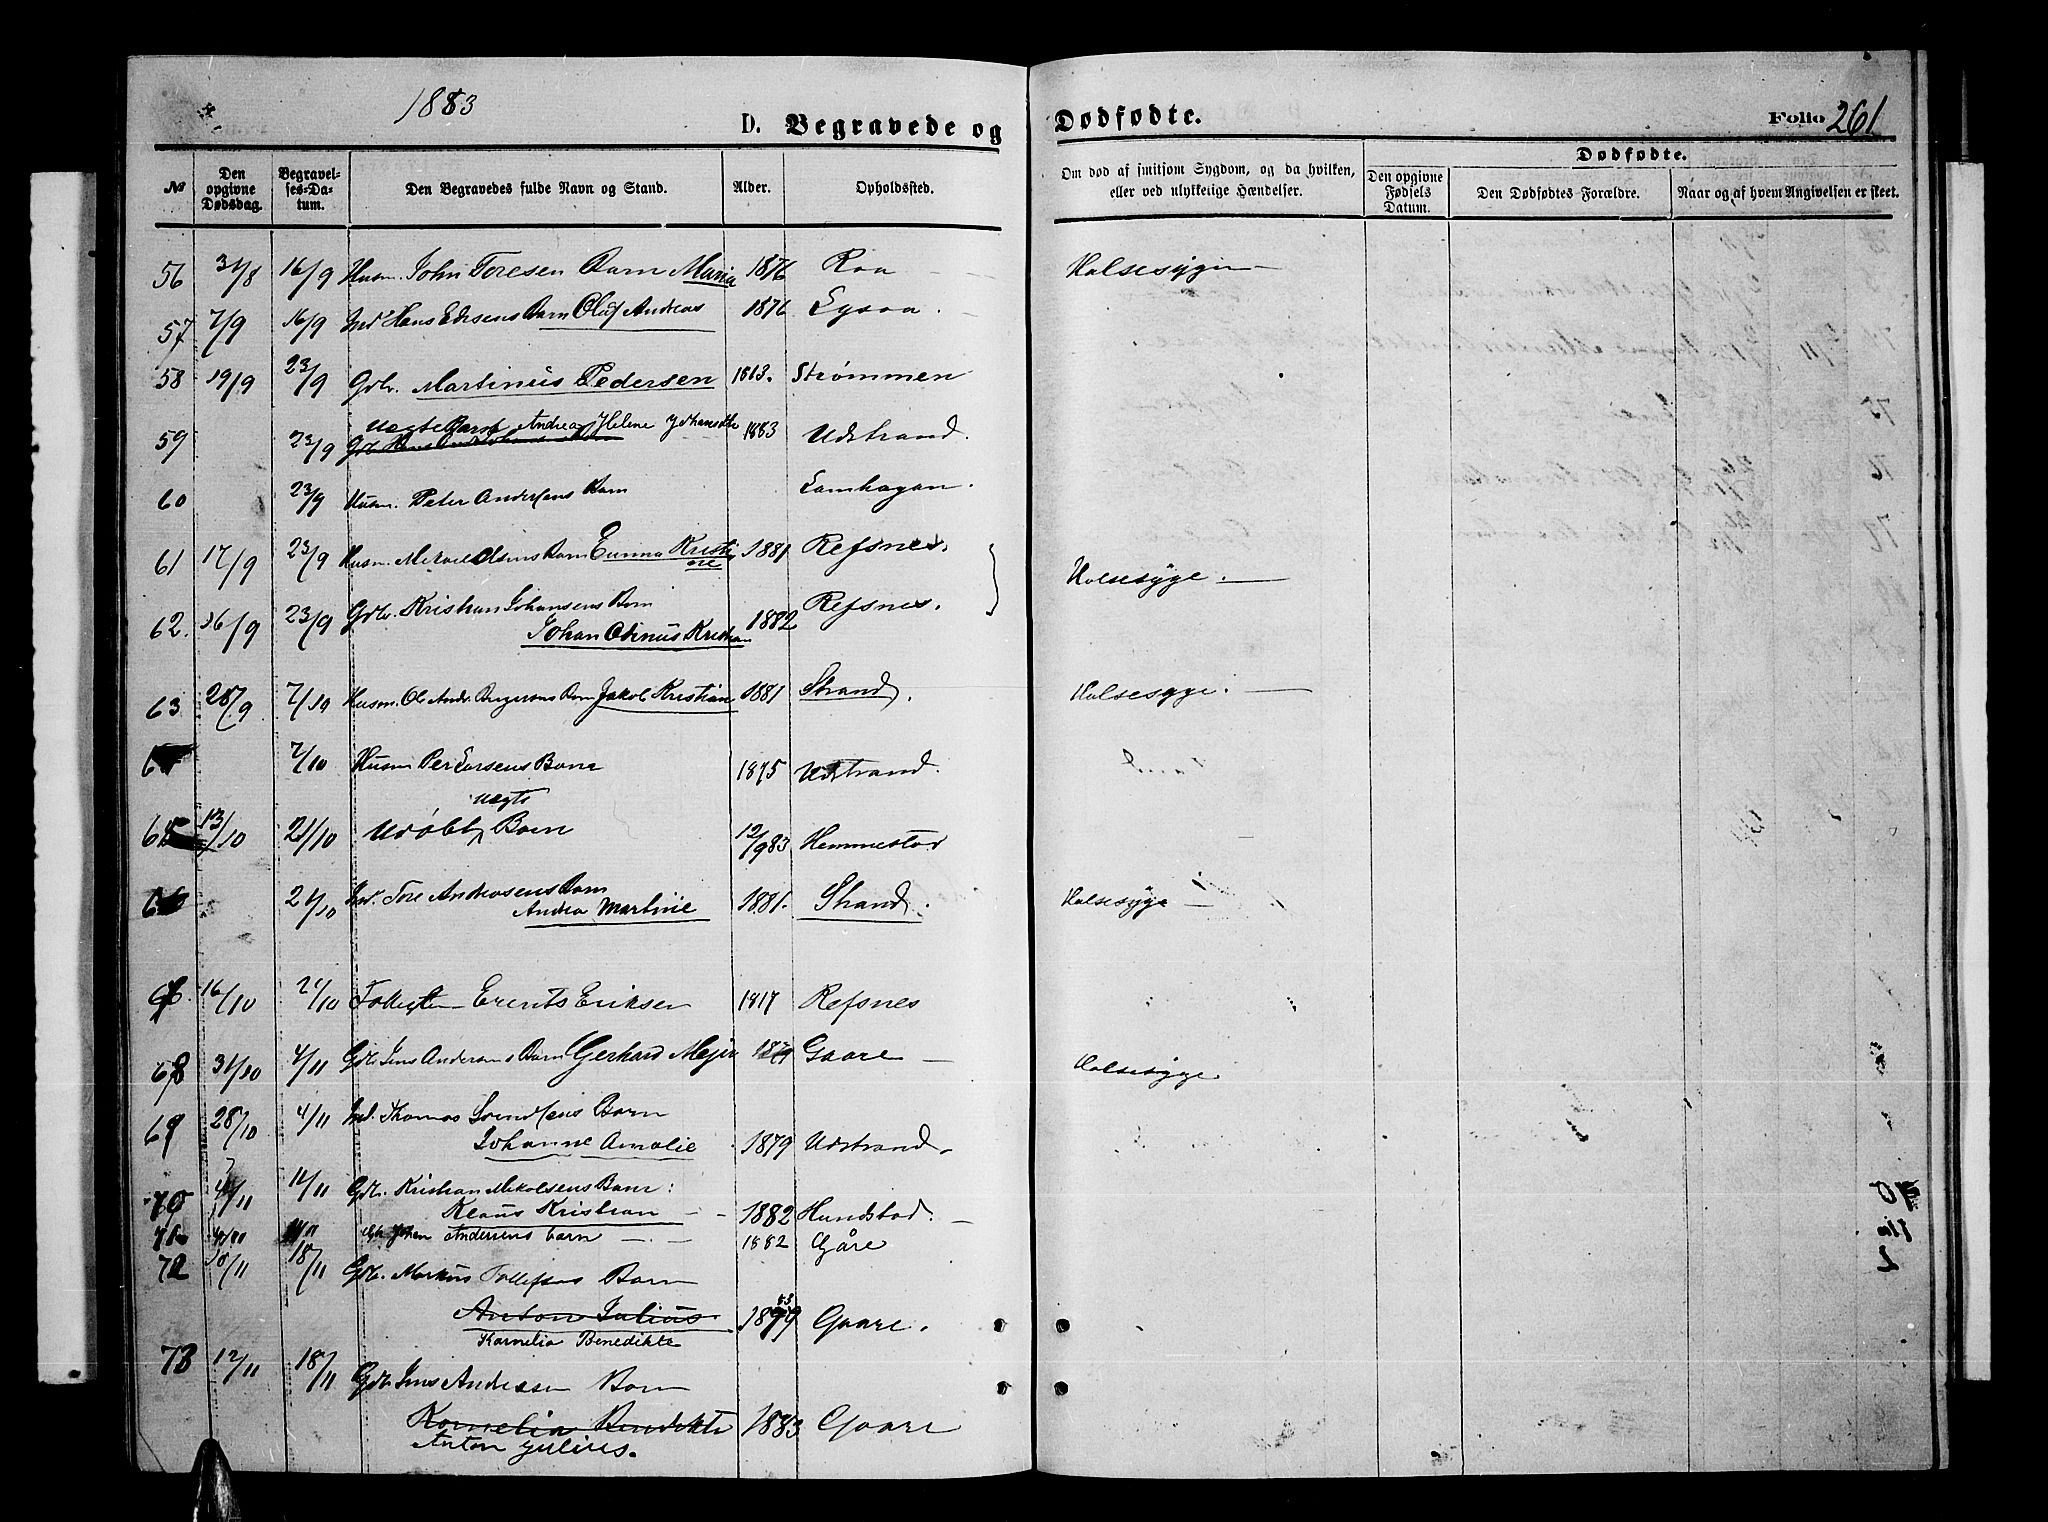 1883
D. Begravede og Dødfødte. Folio 261
№ Den opgivne Dødsdag. Begravelses-Datum. Den Begravedes fulde Navn og Stand. Alder. Opholdssted. Om død af smitsom Sygdom, og da hvilken, eller ved ulykkelige Hændelser. Dødfødte. Den opgivne Fødsels Datum. Den Dødfødtes Forældre. Naar og af hvem Angivelsen er skeet.
56 31/8 16/9 Husm. John Toresen Barn Maria 1876 Roa Halsesyge
57 7/9 16/9 Ind. Hans Barn Oluf Andreas 1876 Lysøa.
58 19/9 23/9 Gdbr. Martinus Pedersen 1813. Strømmen
Uægte Barn Andrea Helene
59 23/9 Gdb. Hans 1883 Udstrand.
60 23/9 Husm. Peter Andersens Barn Lamhagan.
61 17/9 23/9 Husm. Mikael Olsens Barn Emma Kristine 1881 Refsnes. Halsesyge.
62. 16/9 23/9 Gdbr. Kristian Johansens Barn Refsnes.
Johan Odinus Kristian 1882
63 28/9 7/10 Husm. Ole Andr. Barn Jakob Kristian 1881 Strand. Halsesyge.
64 7/10 Husm Per Larsens Barn 1875 Udstrand.
65 13/10 21/10 Udøbt uægte Barn 12/9 83 Hemmestad
66 21/10 Ind. Tore Andreasens Barn
Andrea Martine 1881. Strand. Halsesyge
67. 16/10 21/10 Erents Eriksen 1817 Refsnes
68 31/10 4/11 Gdb. Jens Andersens Barn Gerhard Mejer 1879 Gaare Halsesyge
69 28/10 4/11 Ind. Thomas Barn
Johanne Amalie 1879 Udstrand.
70 4/11 11/11 Gdb. Kristian Mikalsens Barn:
Klaus Kristian 1882 Hundstad.
71 11/11 Johan Andersens barn 1882 Gåre
72 10/11 18/11 Gdb. Markus Tollefsens Barn
Anton Julius 1879 83 Gaare.
Kornelia Benedikte
73 12/11 18/11 Gdb. Jens Andersen Barn
Kornelia Benedikte 1883 Gaare
Anton Julius.